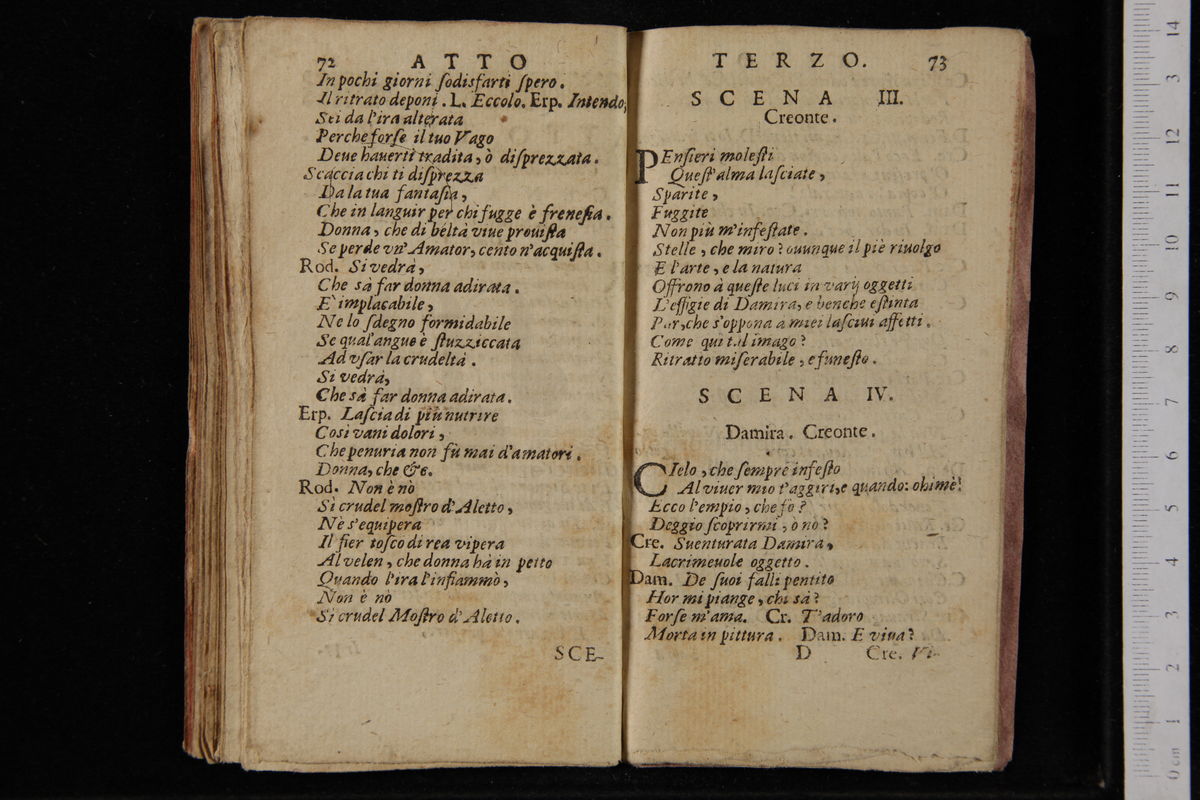 72 ATTO
In pochi giorni ſodisfarti ſpero.
Il ritrato deponi. L. Eccolo. Erp. Intendo;
Sei da l'ira alterata
Perche forſe il tuo Vago
Deue hauerti tradita, ò diſprezzata.
Scaccia chi ti diſprezza
Da la tua fantaſia,
Che in languir per chi fugge è freneſia.
Donna, che di beltà viue prouiſta
Se perde vn' Amator, cento n'acquiſta.
Rod. Si vedrà,
Che sà far donna adirata.
E' implacabile,
Ne lo ſdegno formidabile
Se qual'angue è ſtuzziccata
Ad vſar la crudeltà.
Si vedrà,
Che sà far donna adirata.
Erp. Laſcia di più nutrire
Così vani dolori,
Che penuria non fù mai d'amatori.
Donna, che &c.
Rod. Non è nò
Si crudel moſtro d'Aletto,
Nè s'equipera
Il fier toſco di rea vipera
Al velen, che donna hà in petto
Quando l'ira l'infiammò,
Non è nò
Si crudel Moſtro d'Aletto.
SCE-
TERZO. 73
SCENA III.
Creonte.
PEnſieri moleſti
Queſt'alma laſciate,
Sparite,
Fuggite
Non più m'infeſtate.
Stelle, che miro? ouunque il piè riuolgo
E l'arte, e la natura
Offrono à queſte luci in varij oggetti
L'effigie di Damira, e benche eſtinta
Par, che s'oppona a miei laſciui affetti.
Come quì tal imago?
Ritratto miſerabile, e funeſto.
SCENA IV.
Damira. Creonte.
CIelo, che ſempre infeſto
Al viuer mio t'aggiri, e quando: ohimè!
Ecco l'empio, che fò?
Deggio ſcoprirmi, ò nò?
Cre. Suenturata Damira,
Lacrimeuole oggetto.
Dam. De ſuoi falli pentito
Hor mi piange, chi sà?
Forſe m'ama. Cr. T'adoro
Morta in pittura. Dam. E viua?
D Cre. Vi-
0 cm 1 2 3 4 5 6 7 8 9 10 11 12 3 14